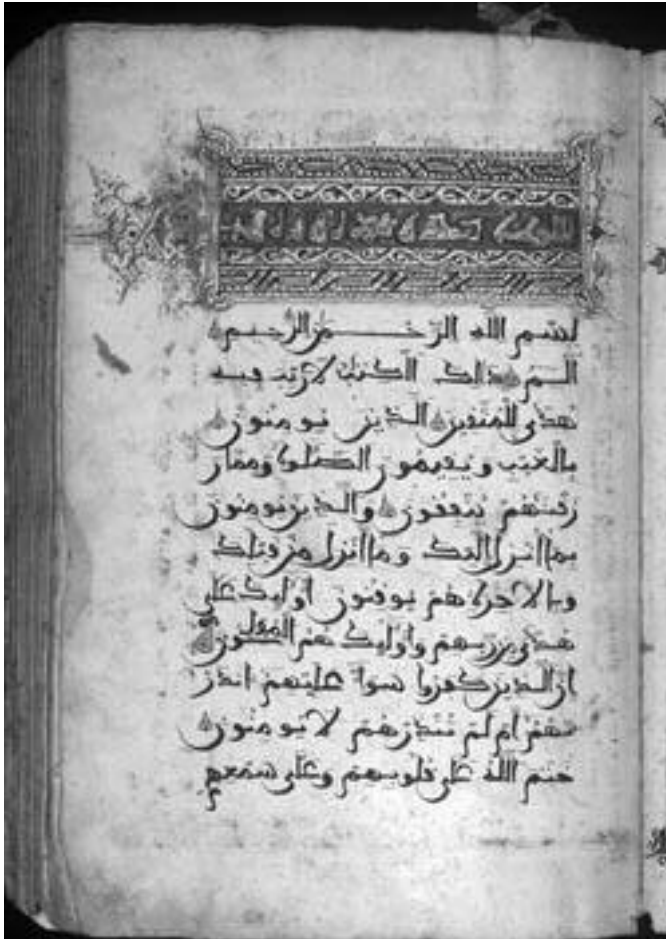 بسم الله الرحمن الرحيم
الم ذلك الكتب لا ريب فيه
هدى للمتقين الذين يومنون
بالغيب ويقيمون الصلوة ومما ر
زقنهم ينفقون والذين يومنون
بما أنزل إليك وما أنزل من قبلك
وبالاخرة هم يوقنون اوليك على
هدى من ربهم واوليك هم المفلحون
ان الذين كفروا سوا عليهم انذر
تهم ام لم تنذرهم لا يومنون
ختم الله على قلوبهم وعلى سمعهم